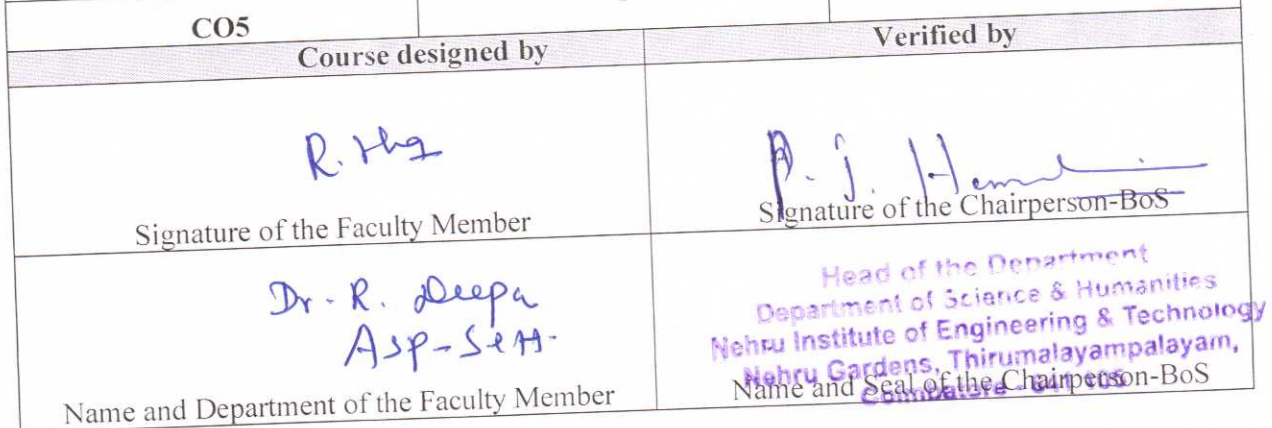 CO5
Course designed by
Verified by
R.
P. J. Hem
Signature of the Faculty Member
Signature of the Chairperson-BoS
Dr. R. Deepa
ASP-S&H.
Name and Department of the Faculty Member
Head of the Department
Department of Science & Humanities
Nehru Institute of Engineering & Technology
Nehru Gardens, Thirumalayampalayam,
Coimbatore - 641 105
Name and Seal of the Chairperson-BoS